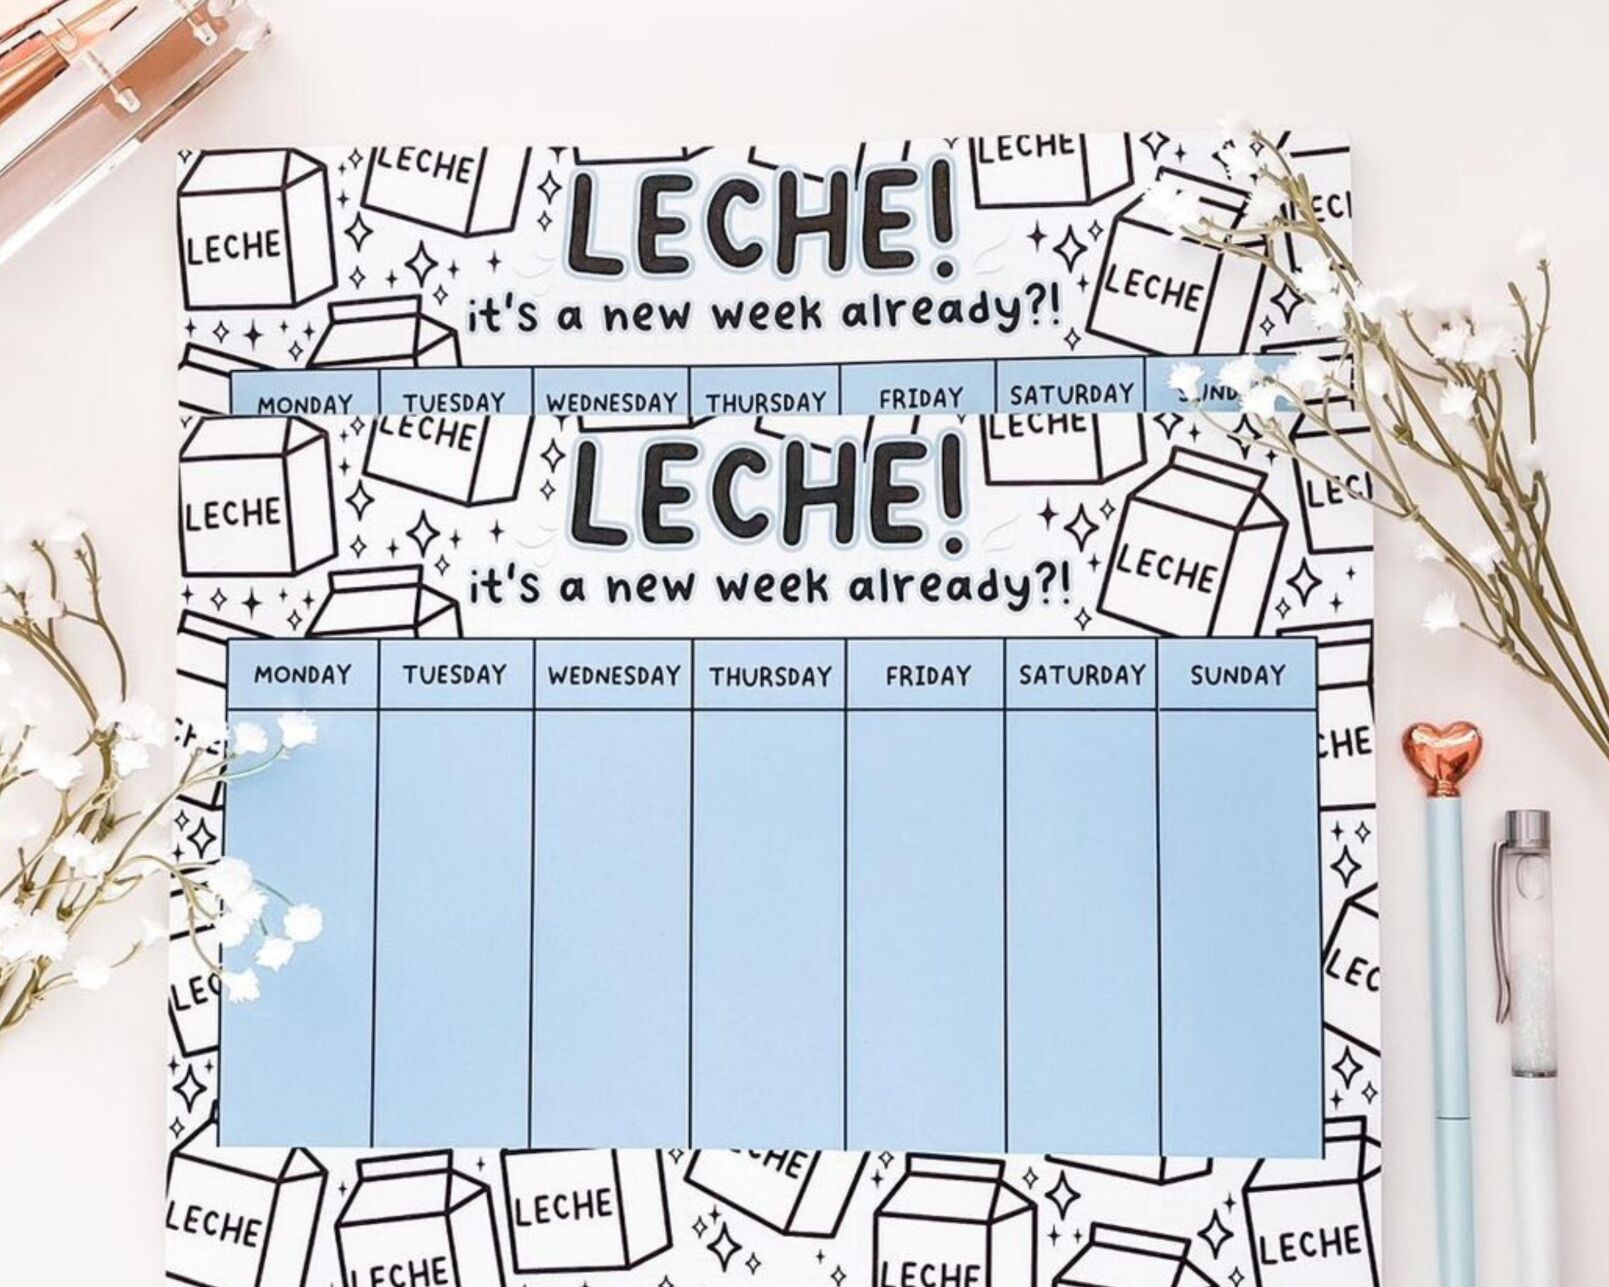 LECHE
LECHE
LECHE!
LECHE
LECHE
it's a new week already?!
MONDAY TUESDAY WEDNESDAY THURSDAY FRIDAY SATURDAY
LECHE
LECHE
LECHE!
LECHE
LECHE
it's a new week already?!
MONDAY TUESDAY WEDNESDAY THURSDAY FRIDAY SATURDAY SUNDAY
LECHE
LECHE
LECHE
LECHE
LECHE